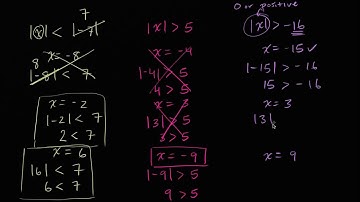 7
|x| < |-7|
x = -8
8
|-8| < 7
x = -2
|-2| < 7
2 < 7
x = 6
|6| < 7
6 < 7
|x| > 5
x = -4
|-4| > 5
4 > 5
x = 3
|3| > 5
3 > 5
x = -9
|-9| > 5
9 > 5
0 or positive
|x| > -16
x = -15 ✓
|-15| > -16
15 > -16
x = 3
|3|
x = 9